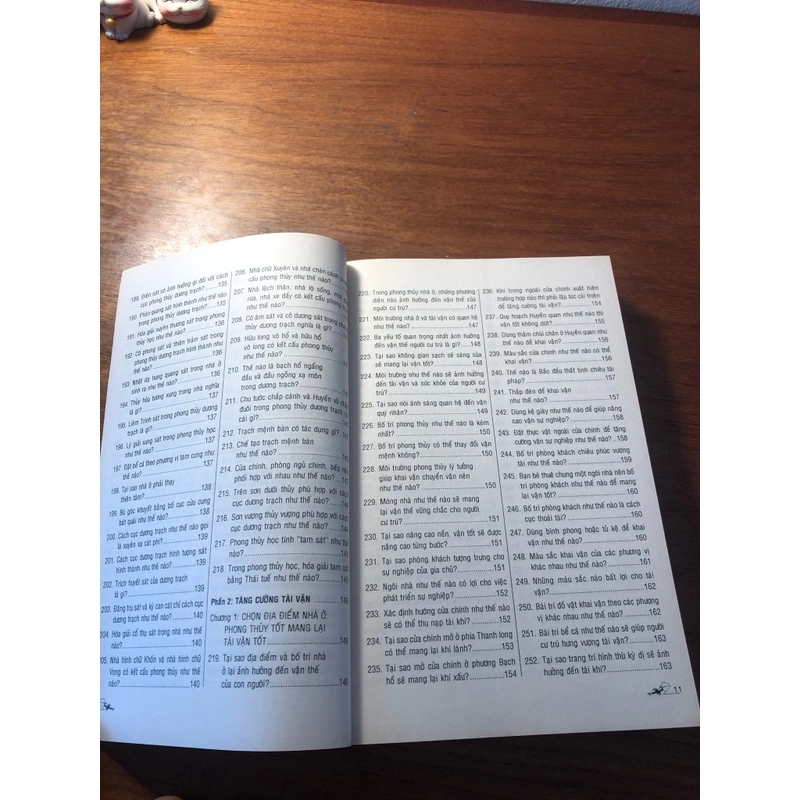 189. Điện sát có ảnh hưởng gì đối với cách
cục phong thủy dương trạch? 135
190. Phản quang sát hình thành như thế nào
trong phong thủy dương trạch? 135
191. Hai giải xuyên thương sát trong phong
thủy học như thế nào? 136
192. Cô phong sát và thiên trảm sát trong
phong thủy dương trạch hình thành như
thế nào? 136
193. Nhất dạ hung quang sát trong nhà ở
sinh ra như thế nào? 136
194. Thủy hỏa tương xung trong nhà nghĩa
là gì? 137
195. Liêm Trinh sát trong phong thủy dương
trạch là gì? 137
196. Lý giải xung sát trong phong thủy học
như thế nào? 137
197. Đặt bể cá theo phương vị tam cung như
thế nào? 137
198. Tại sao nhà ở phải thay
thiên tâm? 139
199. Bù góc khuyết bằng bố cục cửu cung
bát quái như thế nào? 139
200. Cách cục dương trạch như thế nào gọi
là xuyên xa cát phi? 139
201. Cách cục dương trạch hình tượng sát
hình thành như thế nào? 139
202. Trích huyết sát của dương trạch
là gì? 139
203. Đăng trụ sát và kỵ can cát chỉ cách cục
dương trạch như thế nào? 140
204. Hóa giải cổ thụ sát trong nhà như thế
nào? 140
205. Nhà hình chữ Khổn và nhà hình chữ
Vong có kết cấu phong thủy như thế
nào? 140
206. Nhà chữ Xuyên và nhà chèn cánh
cấu phong thủy như thế nào?
207. Nhà lệch thân, nhà lộ sống, nhà
rùa, nhà xe đẩy có kết cấu phong
thế nào?
208. Cô âm sát và cô dương sát trong phong
thủy dương trạch nghĩa là gì?
209. Hữu long vô hổ và hữu hổ
vô long có kết cấu phong thủy
như thế nào?
210. Thế nào là bạch hổ ngẩng
đầu và đầu ngỗng xạ môn
trong dương trạch?
211. Chu tước chắp cánh và Huyền vũ
đuôi trong phong thủy dương trạch
cái gì?
212. Trạch mệnh bàn có tác dụng gì?
213. Chế tạo trạch mệnh bàn
như thế nào?
214. Cửa chính, phòng ngủ chính, bếp
phối hợp với nhau như thế nào?
215. Trên sơn dưới thủy phù hợp với cách
cục dương trạch như thế nào?
216. Sơn vượng thủy vượng phù hợp với cách
cục dương trạch như thế nào?
217. Phong thủy học tính "tam sát" như thế
nào?
218. Trong phong thủy học, hóa giải tam sát
bằng Thái tuế như thế nào?
Phần 2: TĂNG CƯỜNG TÀI VẬN 146
Chương 1: CHỌN ĐỊA ĐIỂM NHÀ Ở:
PHONG THỦY TỐT MANG LẠI
TÀI VẬN TỐT
219. Tại sao địa điểm và bố trí nhà
ở lại ảnh hưởng đến vận thế
của con người? 146
220. Trong phong thủy nhà ở, những phương
diện nào ảnh hưởng đến vận thế của
người cư trú? 147
221. Môi trường nhà ở và tài vận có quan hệ
như thế nào? 147
222. Ba yếu tố quan trọng nhất ảnh hưởng
đến vận thế người cư trú là gì? 148
223. Tại sao không gian sạch sẽ sáng sủa
sẽ mang lại vận tốt? 148
224. Môi trường như thế nào sẽ ảnh hưởng
đến tài vận và sức khỏe của người cư
trú? 149
225. Tại sao nói ánh sáng quan hệ đến vận
quý nhân? 149
226. Bố trí phong thủy như thế nào là kém
nhất? 150
227. Bố trí phong thủy có thể thay đổi vận
mệnh không? 150
228. Môi trường phong thủy lý tưởng
giúp khai vận chuyển vận nên
như thế nào? 150
229. Móng nhà như thế nào sẽ mang
lại vận thế vững chắc cho người
cư trú? 151
230. Tại sao nâng cao nền, vận tốt sẽ được
nâng cao từng bước? 151
231. Tại sao phòng khách tượng trưng cho
sự nghiệp của gia chủ? 151
232. Ngôi nhà như thế nào có lợi cho việc
phát triển sự nghiệp? 152
233. Xác định hướng cửa chính như thế nào
sẽ có thể thu nạp tài khí? 152
234. Tại sao cửa chính mở ở phía Thanh long
có thể mang lại khí lành? 153
235. Tại sao mở cửa chính ở phương Bạch
hổ sẽ mang lại khí xấu? 154
236. Khi trong ngoài cửa chính xuất hiện
trường hợp nào thì phải lập tức cải thiện
để tăng cường tài vận? 154
237. Quay hoạch Huyền quan như thế nào thì
vận tốt không dứt? 155
238. Dùng thảm chùi chân ở Huyền quan như
thế nào để khai vận? 156
239. Màu sắc của cửa chính như thế nào có thể
khai vận? 156
240. Thế nào là Bắc đẩu thất tinh chiêu tài
pháp? 157
241. Thắp đèn để khai vận
như thế nào? 157
242. Dùng kệ giày như thế nào để giúp nâng
cao vận sự nghiệp? 158
243. Đặt thực vật ngoài cửa chính để tăng
cường vận sự nghiệp như thế nào? 158
244. Bố trí phòng khách chiêu phúc vượng
tài như thế nào? 159
245. Bạn bè thuê chung một ngôi nhà nên bố
trí phòng khách như thế nào để mang
lại vận tốt? 160
246. Bố trí phòng khách như thế nào là cách
cục thoái tài? 160
247. Dùng bình phong hoặc tủ kệ để khai
vận như thế nào? 160
248. Màu sắc khai vận của các phương vị
khác nhau như thế nào? 161
249. Những màu sắc nào bất lợi cho tài
vận? 162
250. Bài trí đồ vật khai vận theo các phương
vị khác nhau như thế nào? 162
251. Bài trí bể cá như thế nào sẽ giúp người
cư trú hưng vượng tài vận? 163
252. Tại sao trang trí hình thù kỳ dị sẽ ảnh
hưởng đến tài khí? 163
11